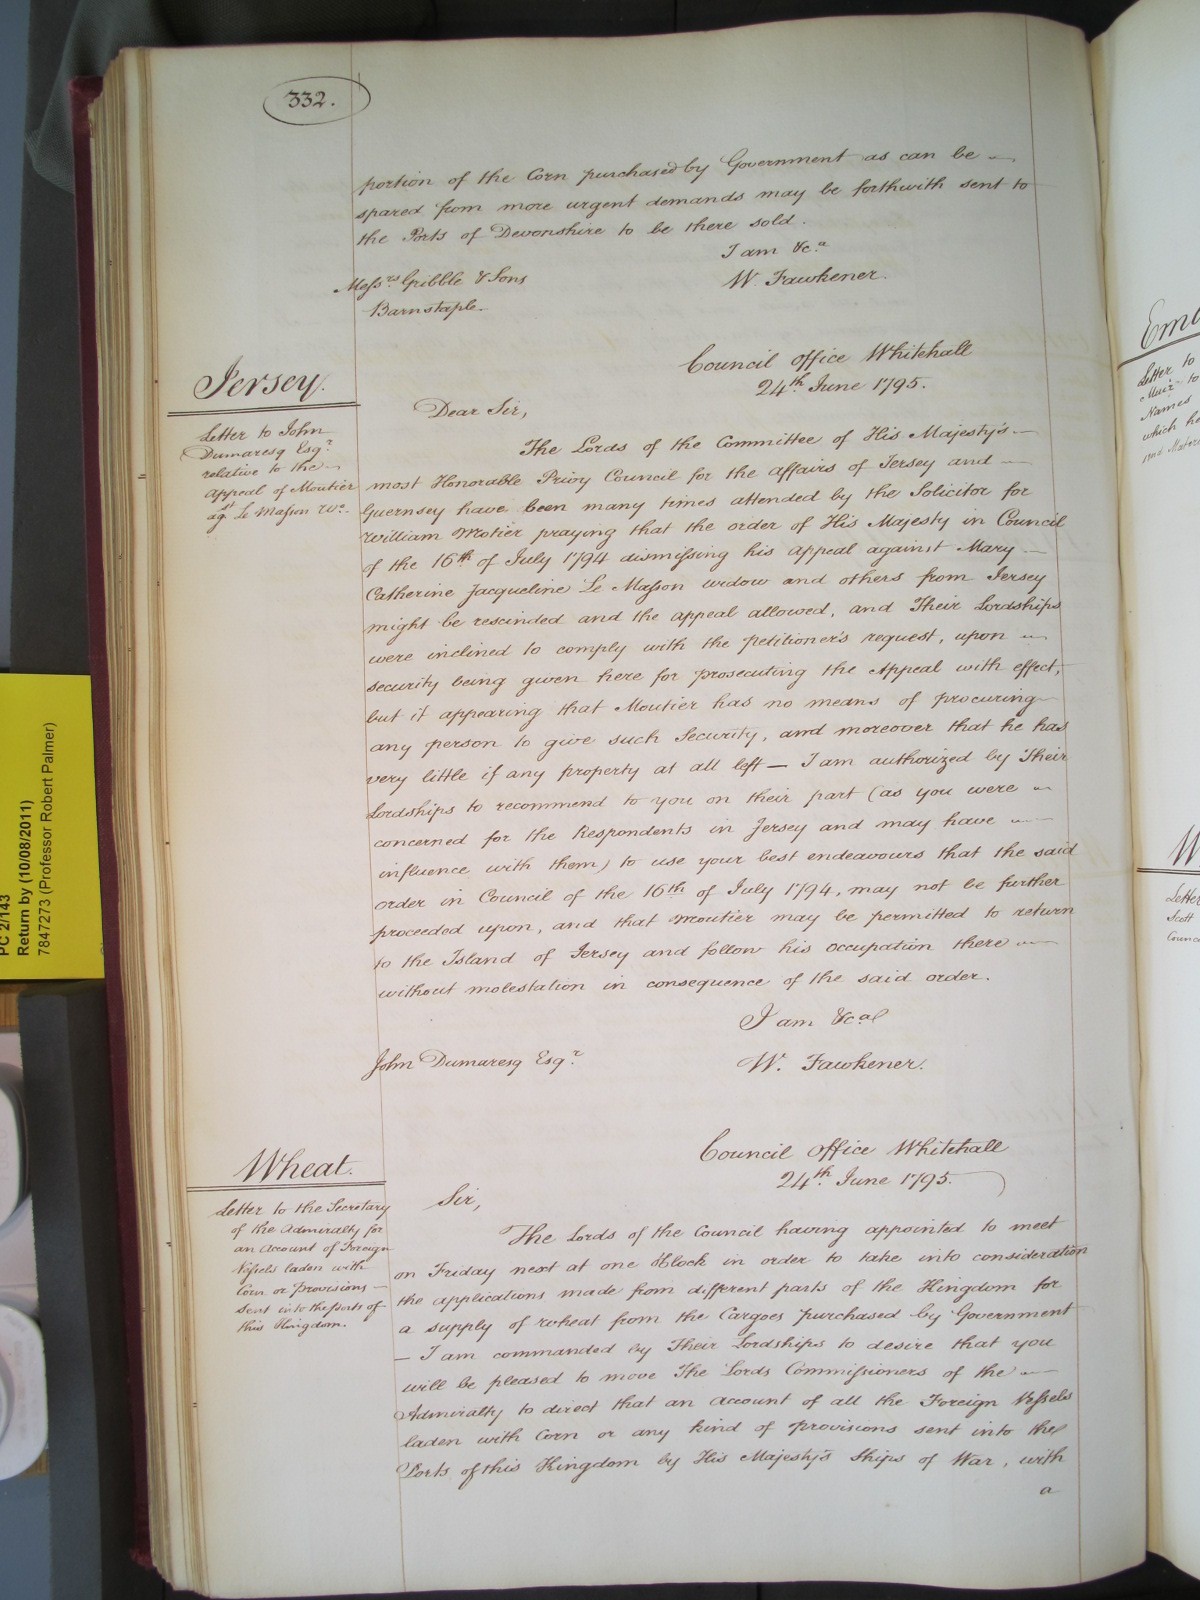 332.
portion of the Corn purchased by Government as can be —
spared from more urgent demands may be forthwith sent to
the Ports of Devonshire to be there sold.
I am &c.a
Messrs. Gribble & Sons
W. Fawkener.
Barnstaple.
Jersey.
Letter to John
Dumaresq Esqr.
relative to the —
appeal of Moutier
agt. Le Masson Wo.
Council Office Whitehall
24th. June 1795.
Dear Sir,
The Lords of the Committee of His Majesty's —
most Honorable Privy Council for the affairs of Jersey and —
Guernsey have been many times attended by the Solicitor for
William Motier praying that the order of His Majesty in Council
of the 16th of July 1794 dismissing his appeal against Mary —
Catherine Jacqueline Le Masson widow and others from Jersey
might be rescinded and the appeal allowed, and Their Lordships
were inclined to comply with the petitioner's request, upon —
security being given here for prosecuting the Appeal with effect,
but it appearing that Moutier has no means of procuring —
any person to give such Security, and moreover that he has
very little if any property at all left — I am authorized by Their
Lordships to recommend to you on their part (as you were —
concerned for the Respondents in Jersey and may have —
influence with them) to use your best endeavours that the said
order in Council of the 16th of July 1794, may not be further
proceeded upon, and that Moutier may be permitted to return
to the Island of Jersey and follow his occupation there —
without molestation in consequence of the said order.
I am &c
John Dumaresq Esqr.
W. Fawkener.
Wheat.
Letter to the Secretary
of the Admiralty for
an Account of Foreign
Vessels laden with
Corn or Provisions —
sent into the ports of
this Kingdom.
Council Office Whitehall
24th. June 1795.
Sir,
The Lords of the Council having appointed to meet
on Friday next at one OClock in order to take into consideration
the applications made from different parts of the Kingdom for
a supply of wheat from the Cargoes purchased by Government
— I am commanded by Their Lordships to desire that you
will be pleased to move The Lords Commissioners of the —
Admiralty to direct that an account of all the Foreign Vessels
laden with Corn or any kind of provisions sent into the
Ports of this Kingdom by His Majesty's Ships of War, with
a
PC 2/143
Return by (10/08/2011)
7847273 (Professor Robert Palmer)
Letter to
Muir to
Names
which
Letter
Scott